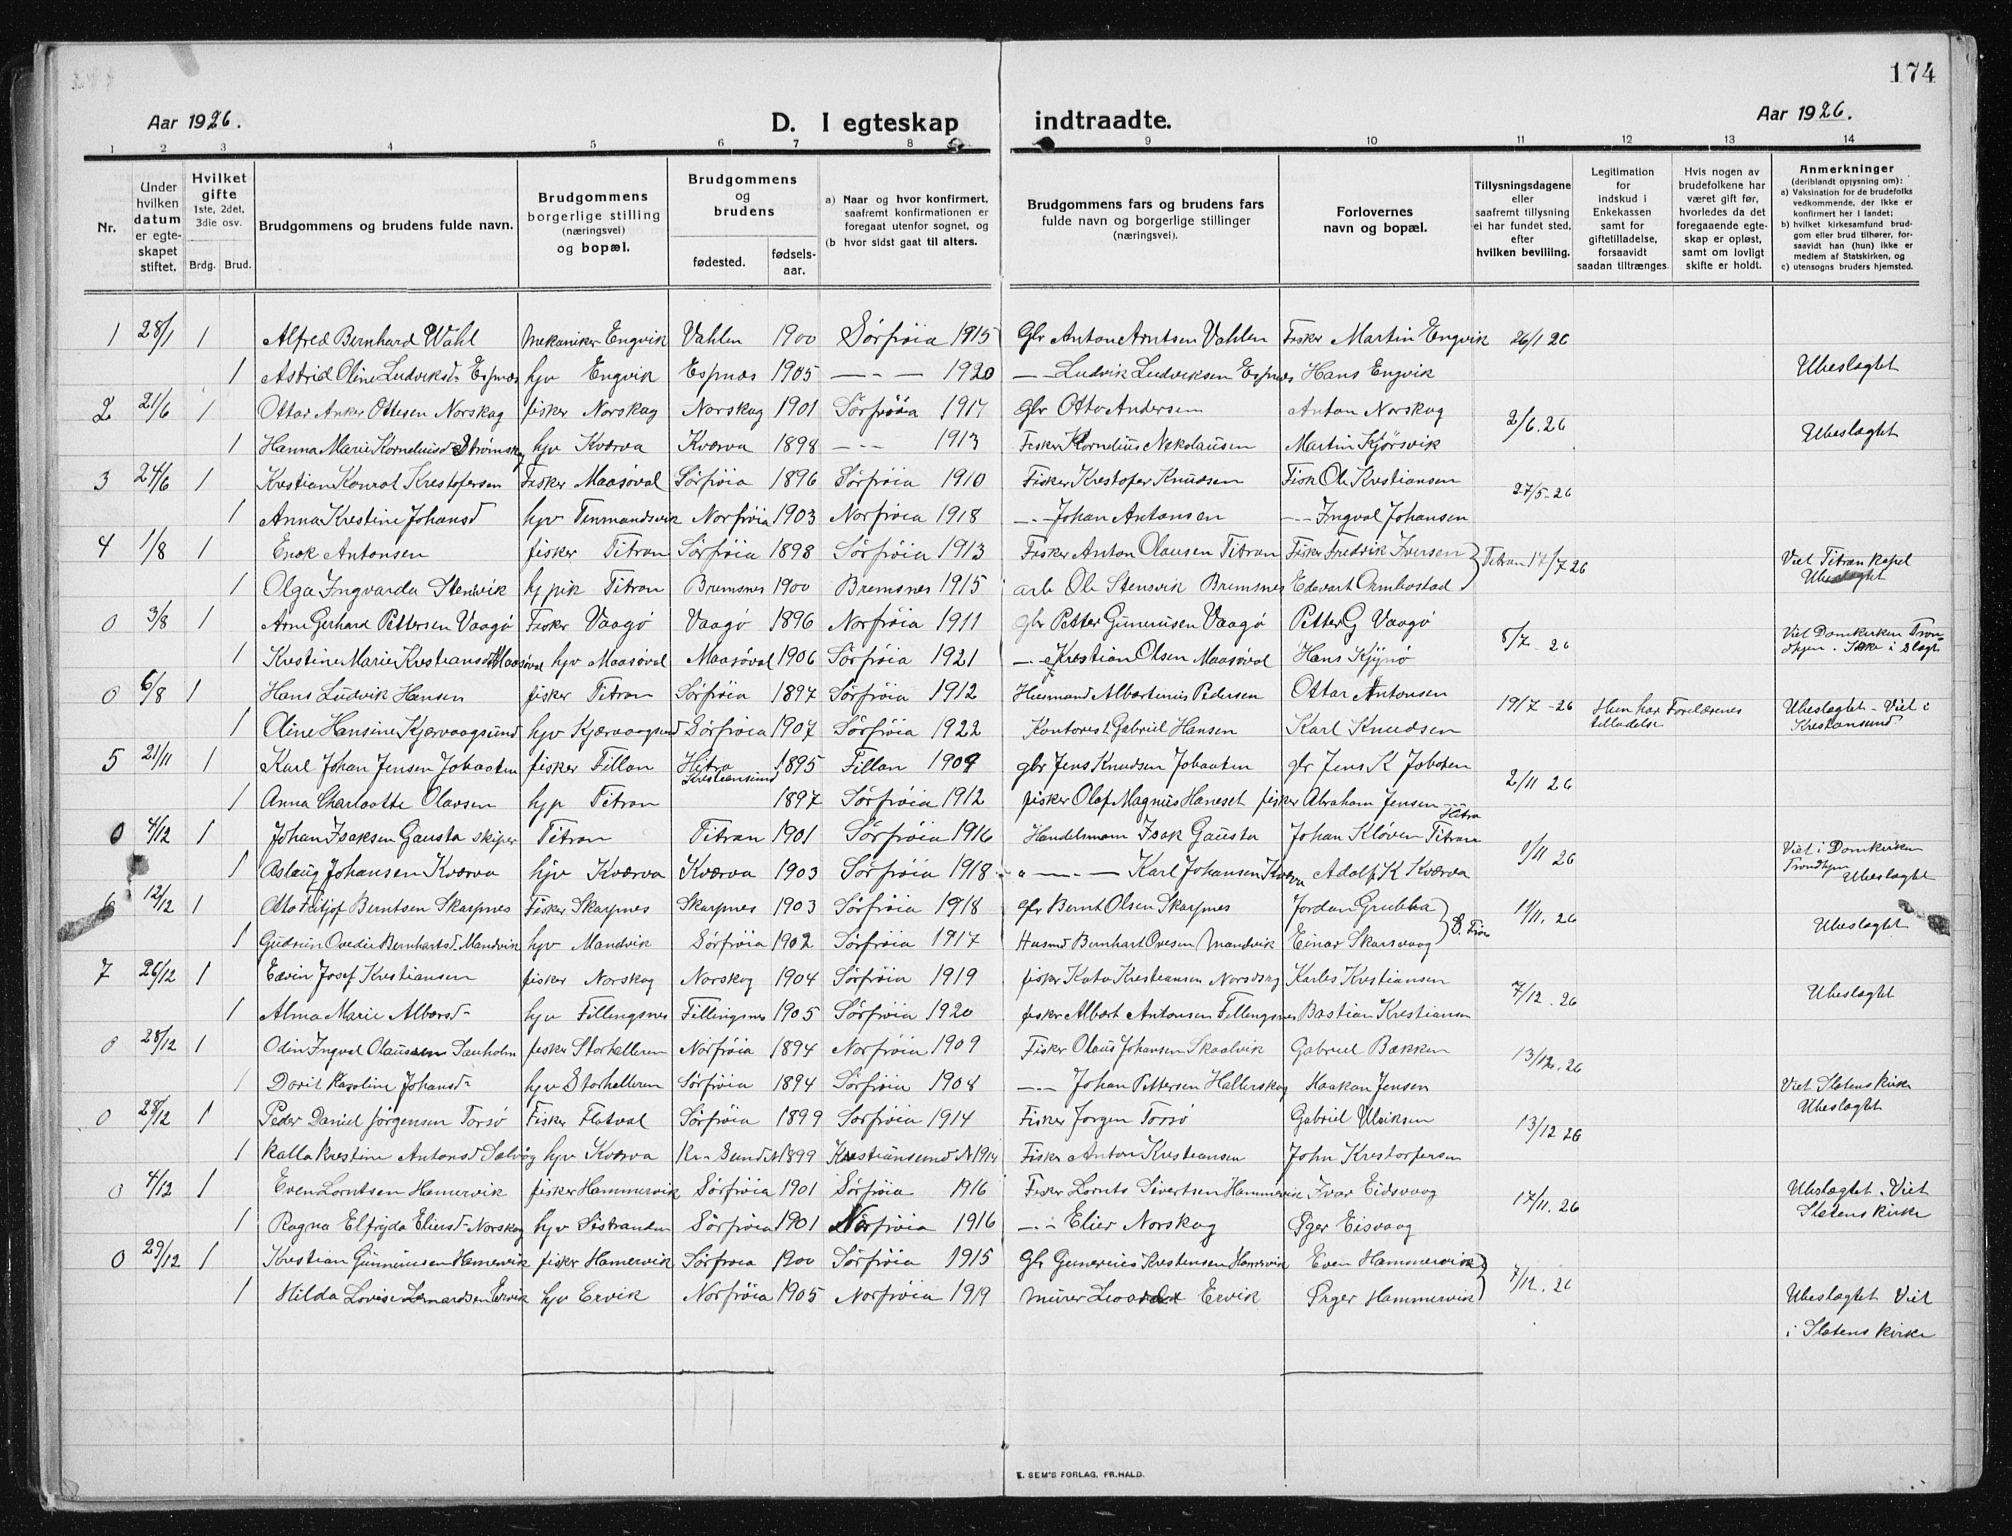 174
Aar 1926.
D. I egteskap indtraadte.
Aar 1926.
1 2 3 4 5 6 7 8 9 10 11 12 13 14
Nr.
Under hvilken datum er egteskapet stiftet.
Hvilket gifte 1ste, 2det, 3die osv.
Brdg. Brud.
Brudgommens og brudens fulde navn.
Brudgommens borgerlige stilling (næringsvei) og bopæl.
Brudgommens og brudens
fødested.
fødsels-aar.
a) Naar og hvor konfirmert, saafremt konfirmationen er foregaat utenfor sognet, og
(b hvor sidst gaat til alters.
Brudgommens fars og brudens fars fulde navn og borgerlige stillinger (næringsvei).
Forlovernes navn og bopæl.
Tillysningsdagene eller saafremt tillysning ei har fundet sted, efter hvilken bevilling.
Legitimation for indskud i Enkekassen samt for giftetilladelse, forsaavidt saadan tiltrænges.
Hvis nogen av brudefolkene har været gift før, hvorledes da det foregaaende egteskap er opløst, samt om lovligt skifte er holdt.
Anmerkninger (deriblandt opjysning om): a) Vaksination for de brudefolks vedkommende, der ikke er konfirmert her i landet; b) hvilket kirkesamfund brudgom eller brud tilhører, forsaavidt han (hun) ikke er medlem af Statskirken, og c) utensogns bruders hjemsted.
1 28/1 1 Alfred Bernhard Wahl Mekaniker Engvik Vahlen 1900 Sørfrøia 1915 Gbr Anton Arntsen Vahlen Fisker Martin Engvik 26/1 26
1 Astrid Oline Ludviksd- Espnes hjv Engvik Espnes 1905 — - — 1920 — Ludvik Ludviksen Espnes Hans Engvik Ubeslagtet
2 21/6 1 Ottar Anker Ottesen Norskag fisker Norskag Norskag 1901 Sørfrøia 1917 gbr Otto Andersen Anton Norskag 2/6.26
1 Hanna Marie Korneliusd Strømskag hjv Kværva Kværva 1898 — - 1913 Fisker Kornelius Nekolausen Martin Kjørsvik Ubeslagtet
3 24/6 1 Krestian Konrat Krestofersen Fisker Maasøval Sørfrøia 1896 Sørfrøia 1910 Fisker Krestofer Knudsen Fisk Ole Krestiansen 27/5-26
1 Anna Krestine Johansd hjv Tinmandsvik Norfrøia 1903 Norfrøia 1918 -.- Johan Antonsen --- Ingval Johansen
4 1/8 1 Enok Antonsen fisker Titran Sørfrøia 1898 Sørfrøia 1913 Fisker Anton Olausen Titran Fisker Fredrik Iversen Titran 17/7 26
1 Olga Ingvarda Stensvik hjpik Titran Bremsnes 1900 Bremsnes 1915 arb Ole Stensvik Bremsnes Edevart Ormbostad Viet Titran kapel Ubeslagtet
0 3/8 1 Arne Gerhard Pettersen Vaagø Fisker Vaagø Vaagø 1896 Norfrøia 1911 gbr Petter Gunerusen Vaagø Petter G Vaagø 8/7 - 26
1 Krestine Marie Krestiansd Maasøval hjv Maasøval Maasøval 1906 Sørfrøia 1921 —. Krestian Olsen Maasøval Hans Kjynø Viet Domkirken Trondhjem. Ikke i Slagt
0 6/8 1 Hans Ludvik Hansen fisker Titran Sørfrøia 1897 Sørfrøia 1912 Husmand Albertinus Pedersen Ottar Antonsen 19/7 - 26 Hun har Forelærenes tilladelse Ubeslagtet - Viet i Krestansund
1 Oline Hansine Kjærvaagsund hjv Kjærvaagsund Sørfrøia 1907 Sørfrøia 1922 Kontorest Gabriel Hansen Karl Knudsen
5 21/11 1 Karl Johan Jensen Joboten fisker Fillan Hitra 1895 Fillan 1909 gbr Jens Knudsen Joboten gbr Jens K Joboten 2/11 26
1 Anna Charlaatte Olavsen hjp Titran Krestiansund 1897 Sørfrøia 1912 fisker Olaf Magnus Haneset fisker Abraham Jensen Hitra
0 4/12 1 Johan Isaksen Gausta skiper Titran Titran 1901 Sørfrøia 1916 Handelsmann Isak Gausta Johan Kløven Titran 1/11 26
1 Aslaug Johansen Kværva hjv Kværva Kværva 1903 Sørfrøia 1918 " — - — Karl Johansen Kværva Adolf K Kværva Viet i Domkirken Trondhjem Ubeslagtet
6 12/12 1 Otto Fritjof Berntsen Skarpnes Fisker Skarpnes Skarpnes 1903 Sørfrøia 1918 gbr Bernt Olsen Skarpnes Jordan Grubba 11/11. 26
1 Gudrun Ovedie Bernhartsd. Mandvik hjv Mandvik Sørfrøia 1902 Sørfrøia 1917 Husmd Bernhart Ovesen Mandvik Einar Skarsvaag S. Frøi Ubeslagtet
7 26/12 1 Edvin Josef Krestiansen fisker Norskag Norskag 1904 Sørfrøia 1919 fisker Kato Krestiansen Norskag Karles Krestiansen 7/12. 26
1 Alma Marie Albersd- hjv Fillengsnes Fillingsnes 1905 Sørfrøia 1920 fisker Albert Antonsen Fillengsnes Bastian Krestiansen Ubeslagtet
0 28/12 1 Odin Ingval Olaussen Sauholm fisker Storhalleren Norfrøia 1894 Norfrøia 1909 Fisker Olaus Johansen Skaalvik Gabriel Bækken 13/12. 26
1 Dorit Karoline Johansd- hjv Storhalleren Sørfrøia 1894 Sørfrøia 1908 —.— Johan Pettersen Hallerskag Haakon Jensen Viet Sletens Kirke
0 28/12 1 Peder Daniel Jørgensen Torsø Fisker Flatval Sørfrøia 1899 Sørfrøia 1914 Fisker Jorgen Torsø Gabriel Ulriksen 13/12 26 Ubeslagtet
1 Kalla Krestine Antonsd Sælvåg hjv Kværva Kr-Sund N 1899 Krestiansund N 1914 Fisker Anton Krestiansen John Krestofersen
0 4/12 1 Even Lorntsen Hamervik fisker Hammervik Sørfrøia 1901 Sørfrøia 1916 Fisker Lornts Sivertsen Hammervik Ivar Eidsvaag 17/11. 26 Ubeslagtet. Viet Sletens kirke
1 Ragna Elfryda Eliersd- Norskag hjv Sistranden Sørfrøia 1901 Norfrøia 1916 -.- Elier Norskag Øger Eisvaag
0 29/12 1 Krestian Gunneriusen Hamervik fisker Hamervik Sørfrøia 1900 Sørfrøia 1915 Gbr Gunerius Krestensen Hamervik Even Hammervik 7/12. 26
1 Hilda Lovise Lenardsen Ervik hjv Ervik Norfrøia 1905 Norfrøia 1919 Murer Ervik Hammervik Ubeslagtet Viet
i Sletens Kirke
E. SEM'S FORLAG, FR.HALD.